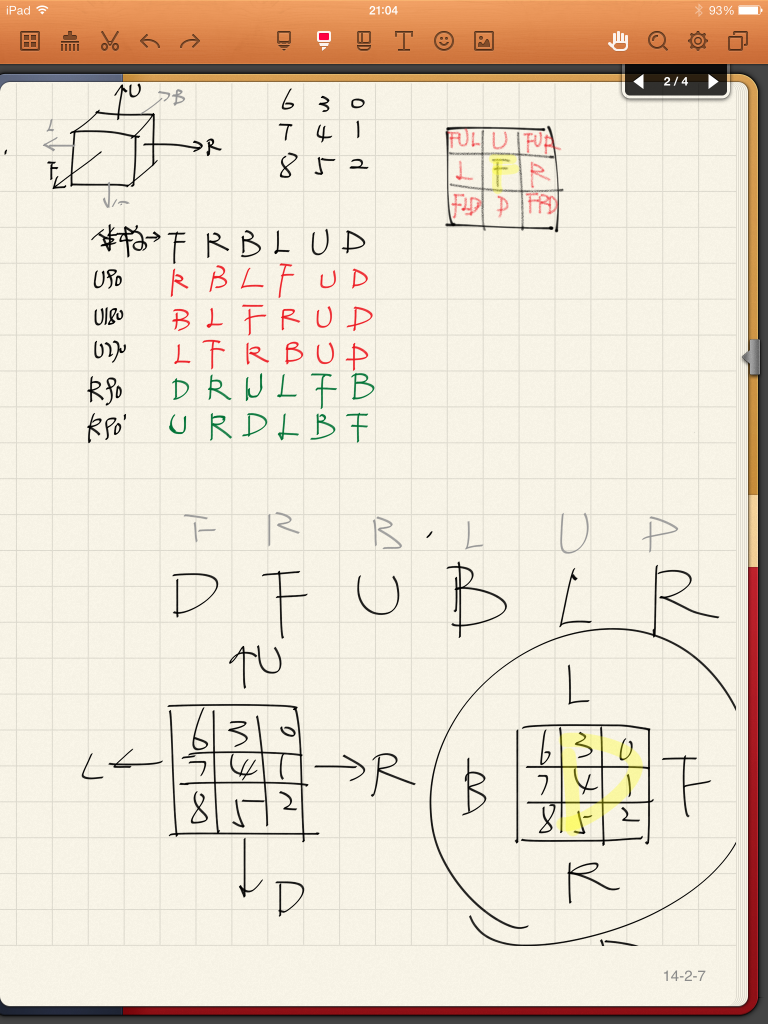 iPad 21:04 93%
2 / 4
U
B
L
R
F
6 3 0
7 4 1
8 5 2
FUL U FUR
L F R
FLD D FRD
F R B L U D
U90 R B L F U D
U180 B L F R U D
U270 L F R B U D
R90 D R U L F B
R90' U R D L B F
F R B L U D
D F U B L R
U
6 3 0
L 7 4 1 R
8 5 2
D
L
6 3 0
B 7 4 1 F
8 5 2
D
R
14-2-7